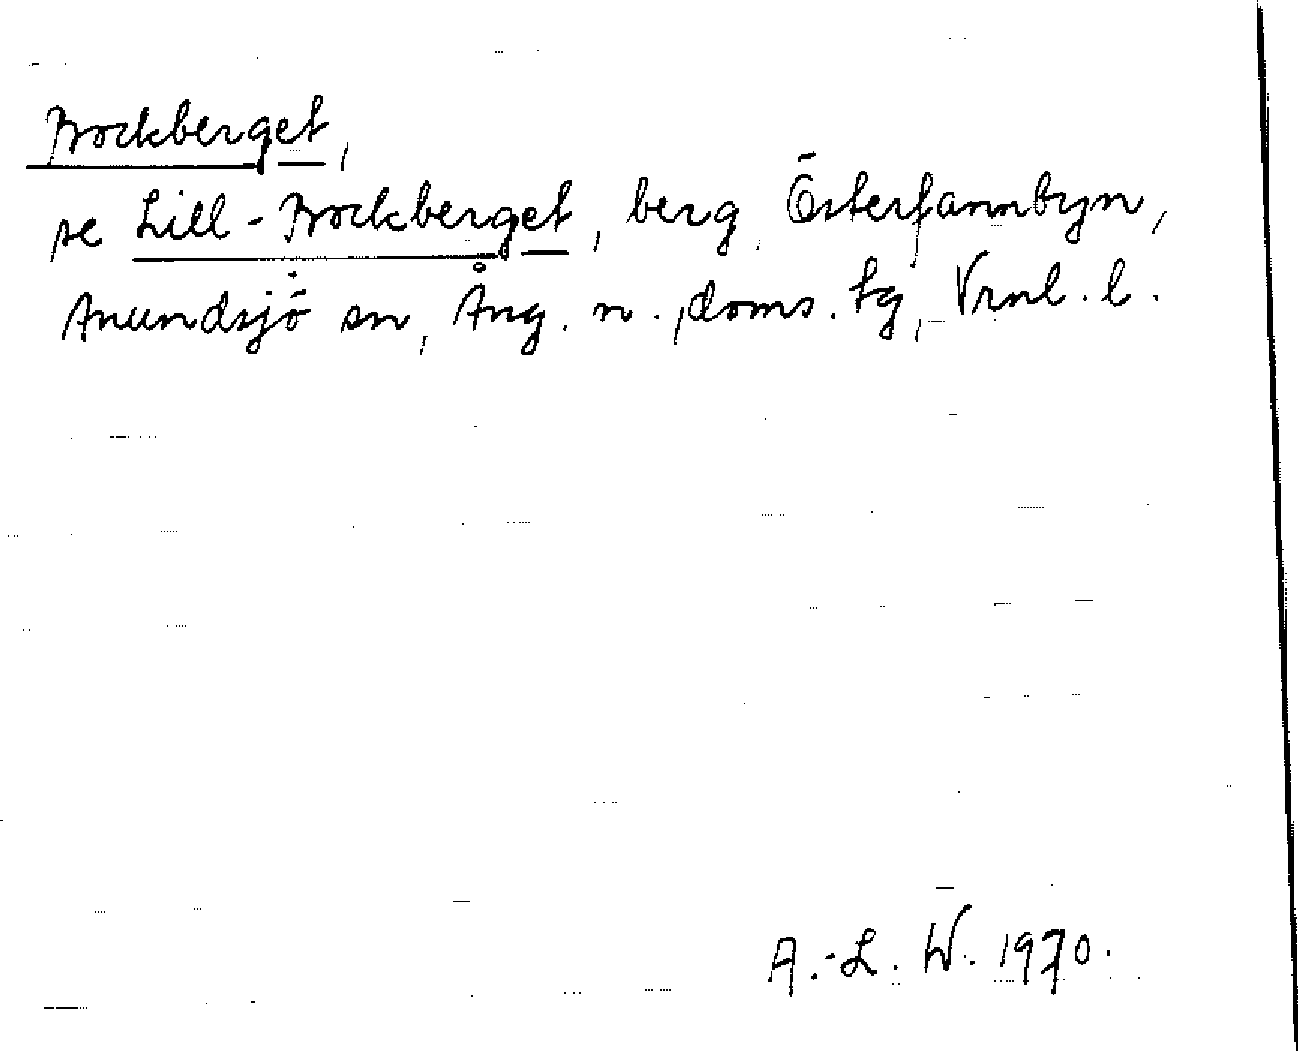 Bockberget,
se Lill-Bockberget, berg, Österfannbyn,
Anundsjö sn, Ång. n., doms. tg, Vrnl. l.
A.-L. W. 1970.